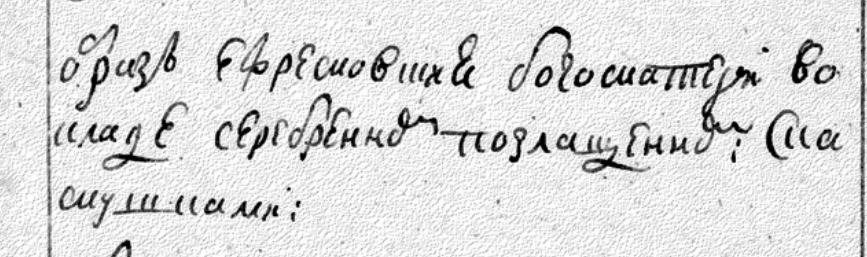 образъ ефремовские богоматери во
кладе серебренномъ позлащенномъ; ска
мушками: